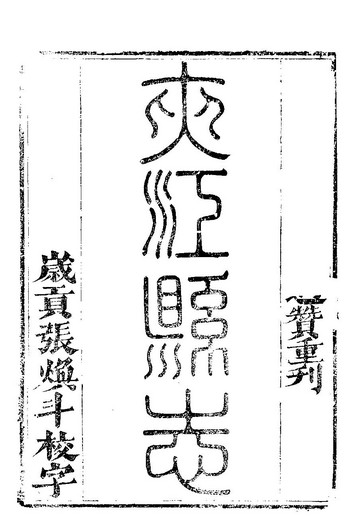 贊重刊
夾江縣志
歲貢張煥斗校字